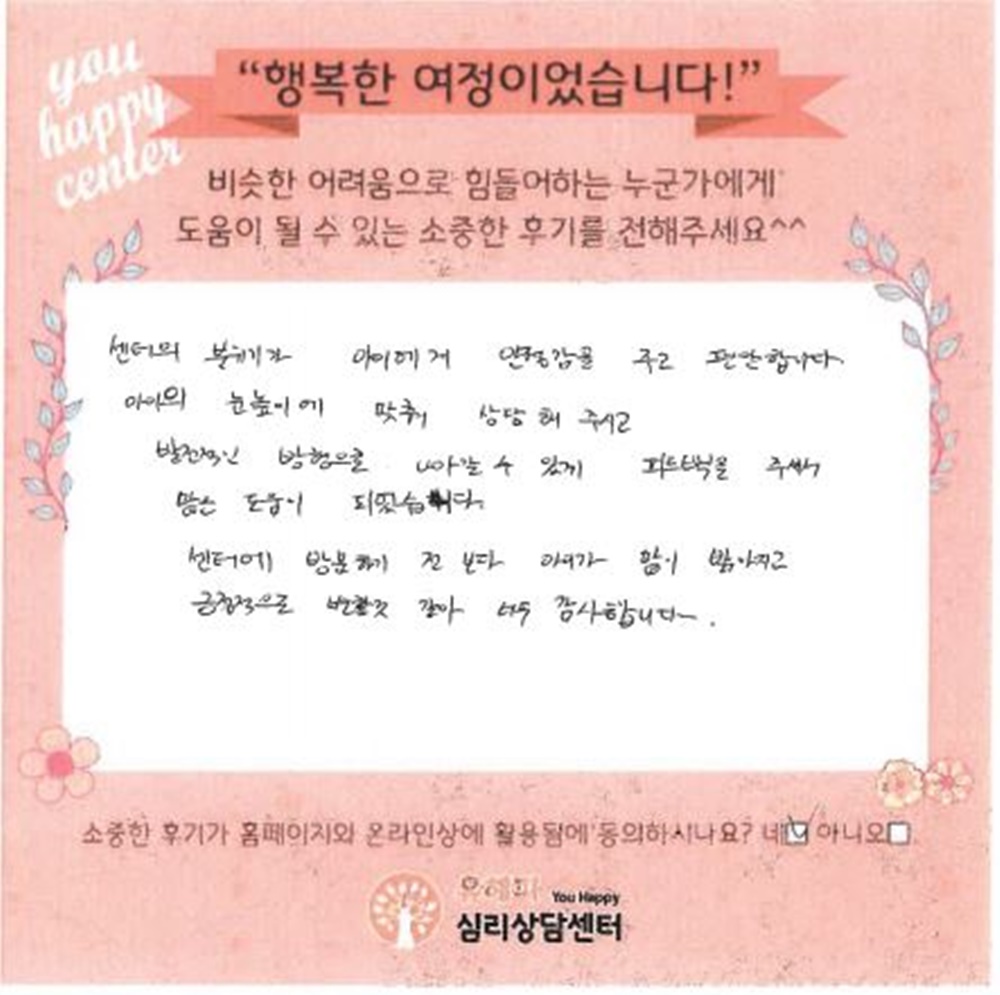 you
happy
center
“행복한 여정이었습니다!”
비슷한 어려움으로 힘들어하는 누군가에게
도움이 될 수 있는 소중한 후기를 전해주세요^^
센터의 분위기가 아이에게 안정감을 주고 편안합니다.
아이의 눈높이에 맞춰 상담해 주시고
발전적인 방향으로 나아갈 수 있게 피드백을 주셔서
많은 도움이 되었습니다.
센터에 방문하기 전 보다 아이가 많이 밝아지고
긍정적으로 변한것 같아 너무 감사합니다.
소중한 후기가 홈페이지와 온라인상에 활용됨에 동의하시나요? 네 아니오
유해피 You Happy
심리상담센터